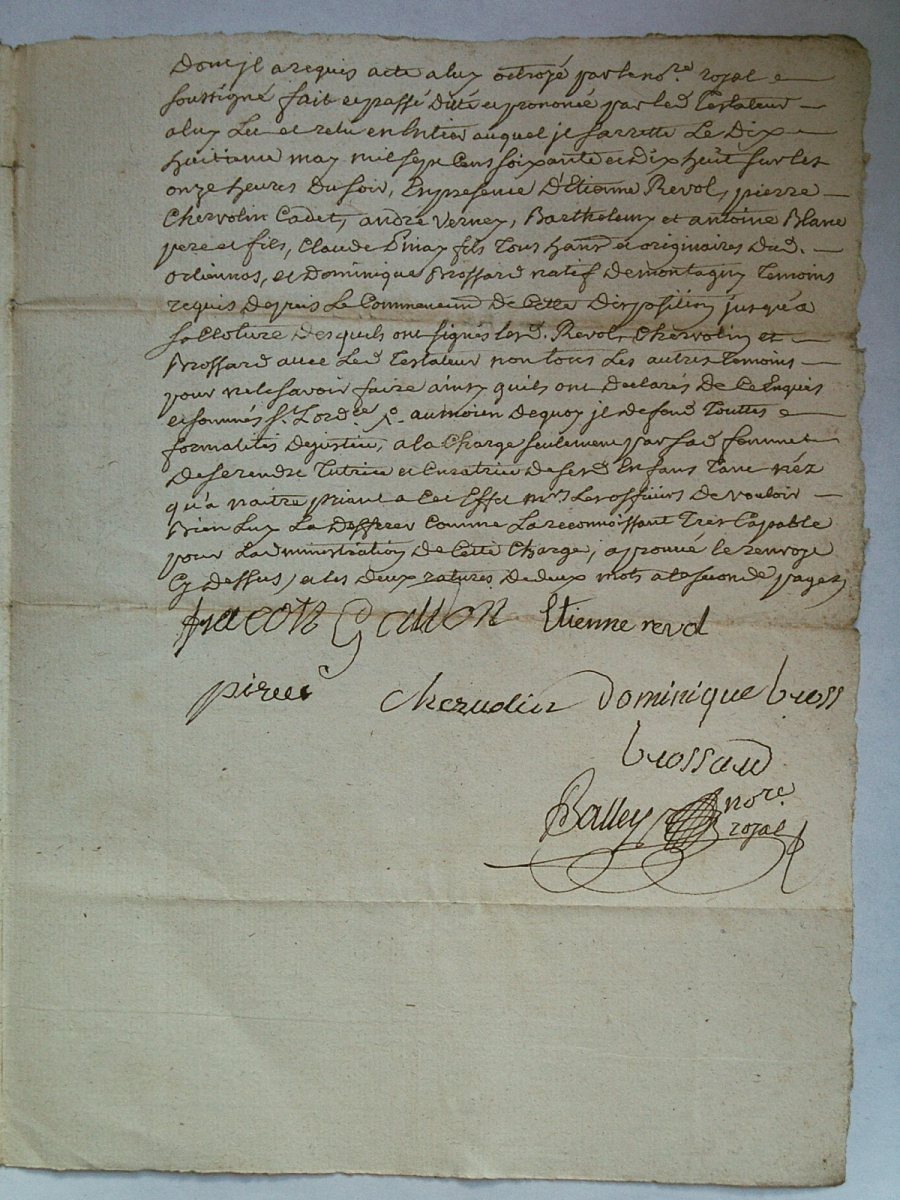 Dont jl a requis acte a luy octroyé par le no.re royal
soussigné fait et passé dicté et prononcé par led testateur
a luy Leu et releu en Entier auquel jl sarrette Le Dix
huitieme may mil sept Cens soixante et dix huit sur les
onze heures Du soir, En presence D'Etienne Revol, pierre
Chervolin Cadet, andré Verney, Barthelemy et antoine Blanc
pere et fils, Claude fils tous et originaires dud.
orliennos, et Dominique Brossard natif De montagny temoins
requis Depuis Le Commencem de Cette Disposition jusqu'a
sa Cloture Desquels ont signés lesd. Revol, Chervolin et
Brossard avec Led testateur non tous Les autres temoins
pour ne le savoir faire ainsy quils ont Declarés De Ce Enquis
et sommés s.t Lord.ce au moien De quoy jl defend touttes
formalités De justice, a la Charge seulement par sad femme
De se rendre tutrice et Curatrice De sesd Enfans tant néz
qu'a naitre priant a Cet Effet m.rs Les officiers De vouloir
Bien Luy La Defferer Comme La reconnoissant tres Capable
pour Ladministration de Cette Charge, aprouvé le renvoye
Cy Dessus, et les deux ratures De deux mots a la seconde page
Gallon Etienne revol
Dominique bross
brossard
Balley nore.
royal